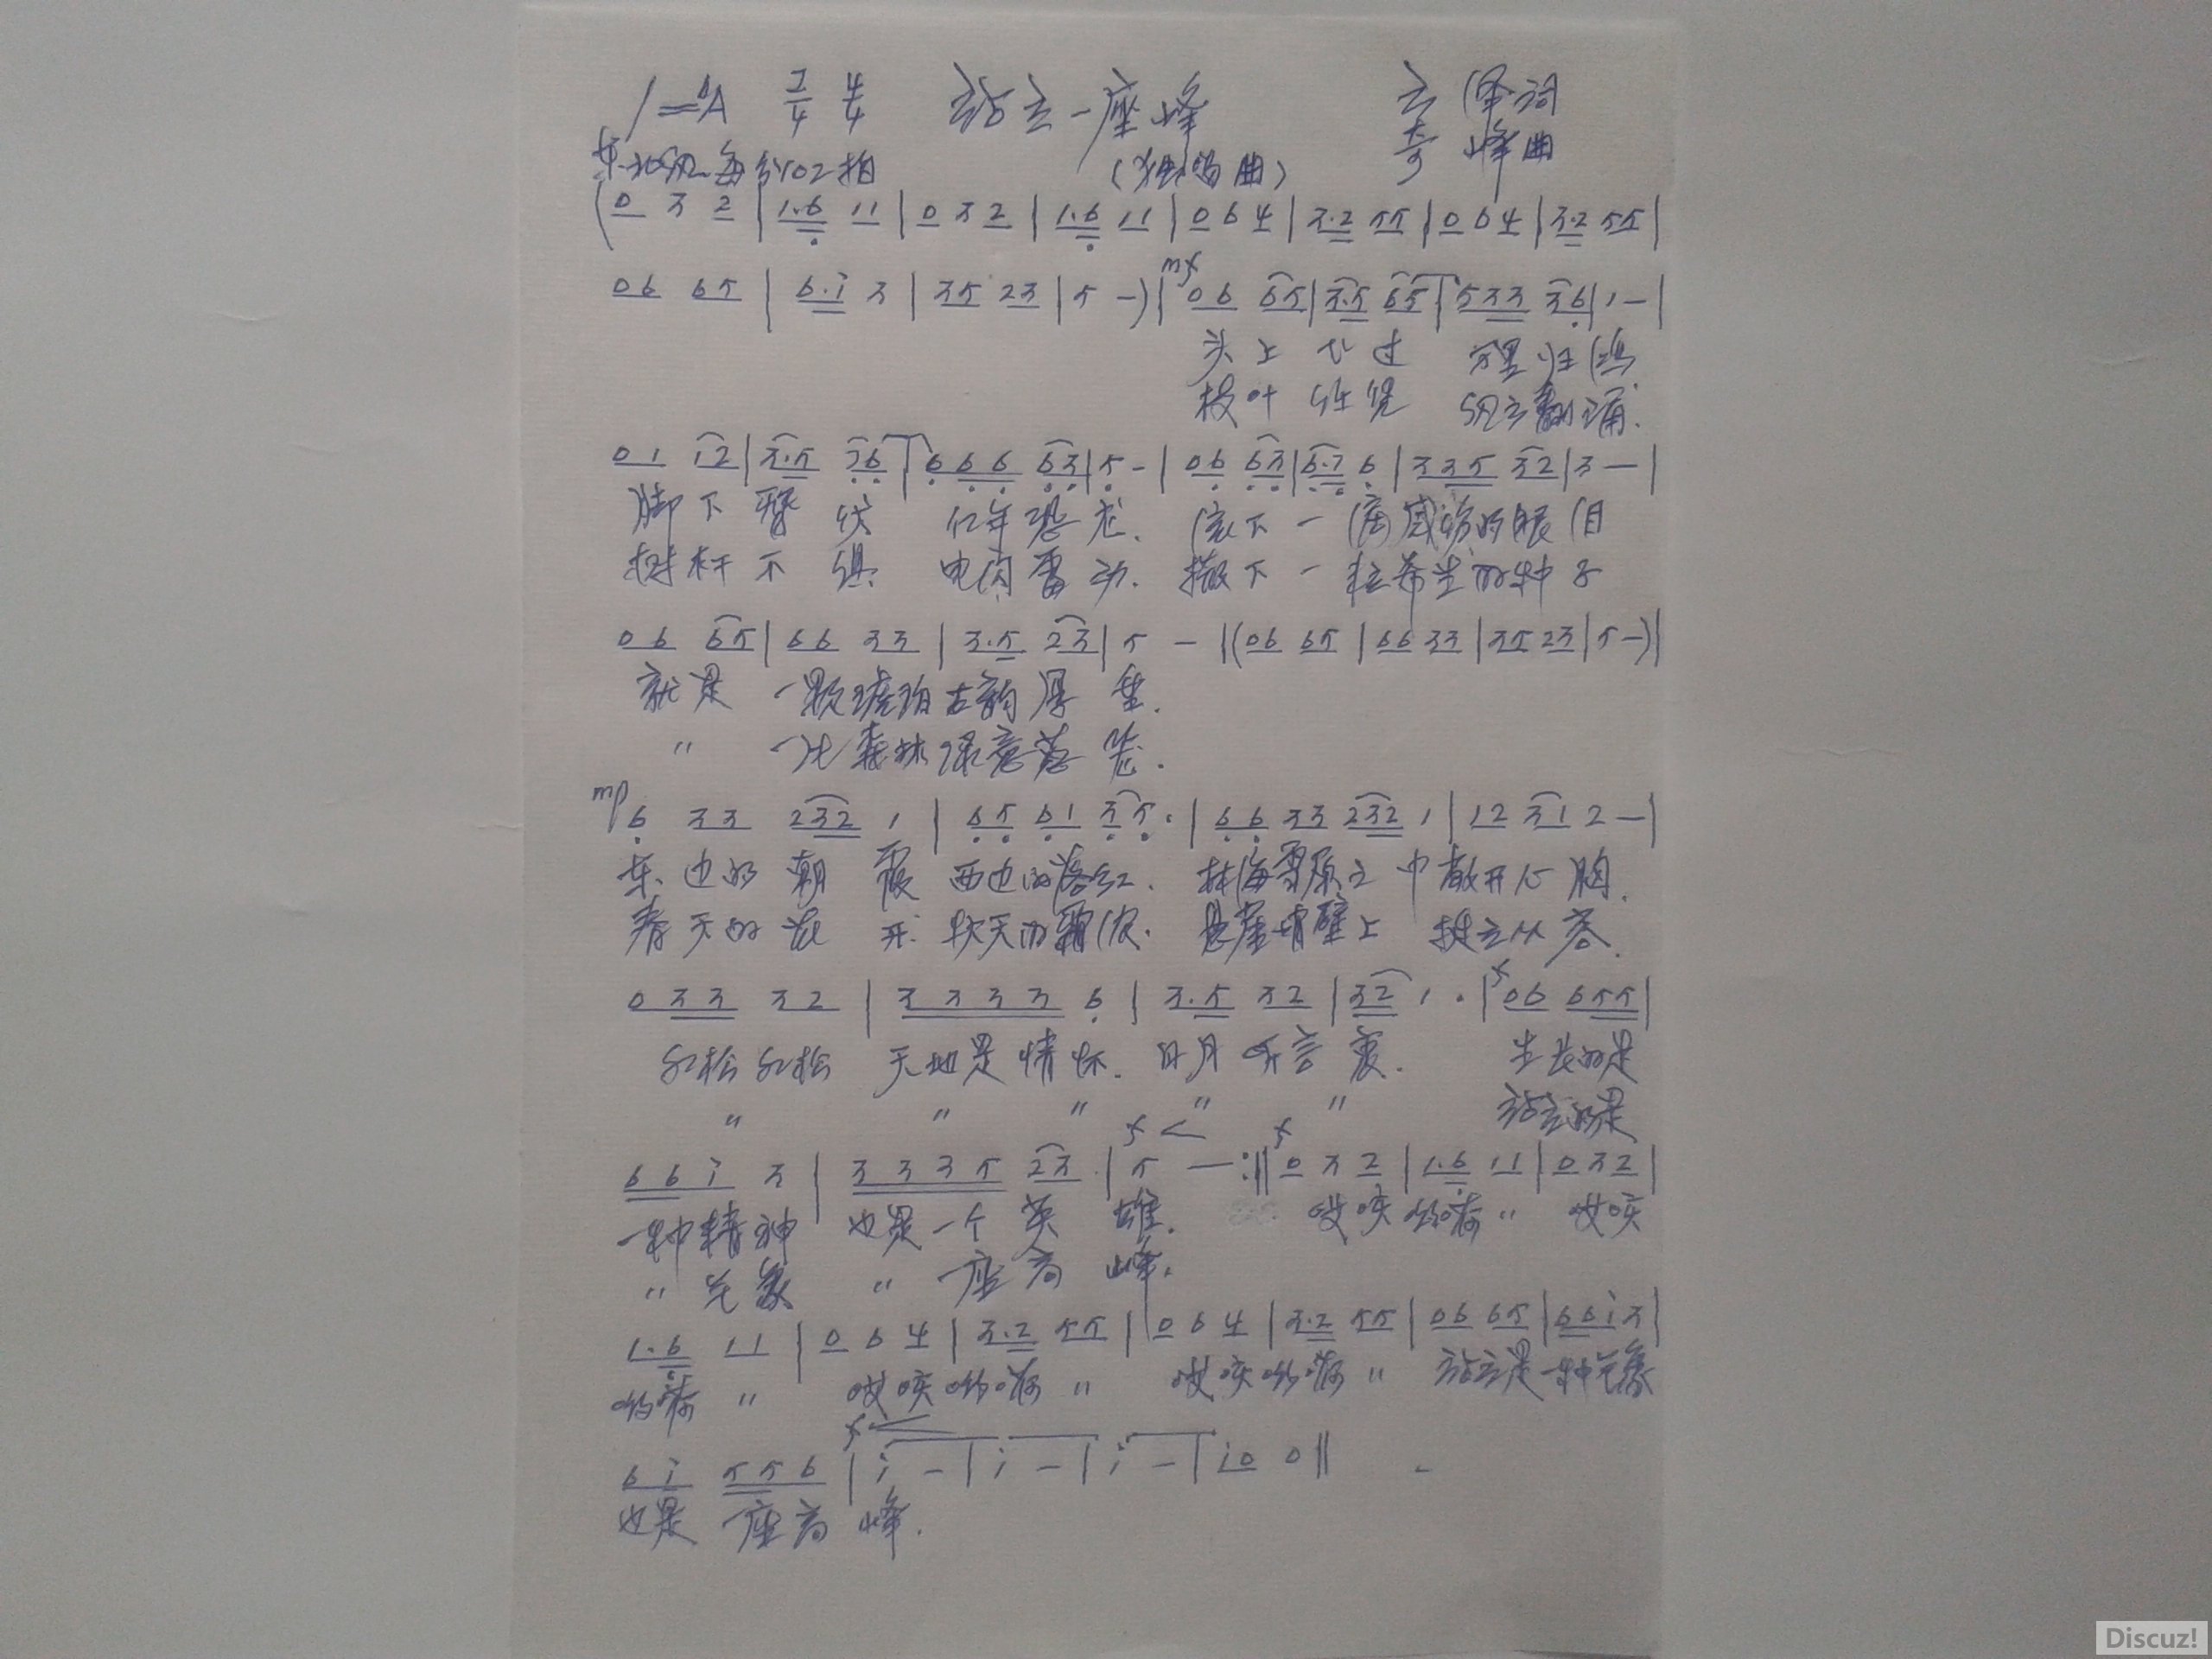 1=♭A 2/4 4/4 站立一座峰 词
东北风 每分102拍 (独唱曲) 奇峰曲
(0 3 2 | 1.6 11 | 0 3 2 | 1.6 11 | 0 6 4 | 3.2 55 | 0 6 4 | 3.2 55 |
06 65 | 6.i 3 | 35 23 | 5 -)| mf 06 65 | 3.5 65 | 533 36 | 1 - |
头上飞过 万里归鸿
枝叶 风云翻涌.
01 12 | 3.5 16 | 666 63 | 5 - | 06 63 | 6.1 6 | 335 32 | 3 — |
脚下 伏 亿年恐龙. 下一滴感动的眼泪
树杆不惧 电闪雷动. 撒下一粒希望的种子
06 65 | 66 33 | 3.5 23 | 5 - |(06 65 | 66 33 | 35 23 | 5 -)|
就是 一颗琥珀古韵厚重.
〃 一片森林绿意葱茏.
mp 6 33 232 1 | 65 61 35. | 66 33 232 1 | 12 31 2 - |
东边的朝霞 西边的落红. 林海雪原之中敞开心胸.
春天的花开. 秋天的霜浓. 悬崖峭壁上 挺立从容.
033 32 | 3333 6 | 3.5 32 | 32 1 . | f 06 655 |
红松红松 天地是情怀. 日月 生长的是
〃 〃 〃 〃 〃 站立的是
66i 3 | 3335 23 | 5 — :|| 0 3 2 | 1.6 11 | 0 3 2 |
一种精神 也是一个英雄. 哎咳哟嗬〃 哎咳
〃 气象 〃 一座高峰.
1.6 11 | 0 6 4 | 3.2 55 | 0 6 4 | 3.2 55 | 06 65 | 66i3 |
哟嗬 〃 哎咳哟嗬 〃 哎咳哟嗬 〃 站立是一种气象
6i 556 | i - | i - | i - | i0 0 ||
也是 一座高峰.
Discuz!